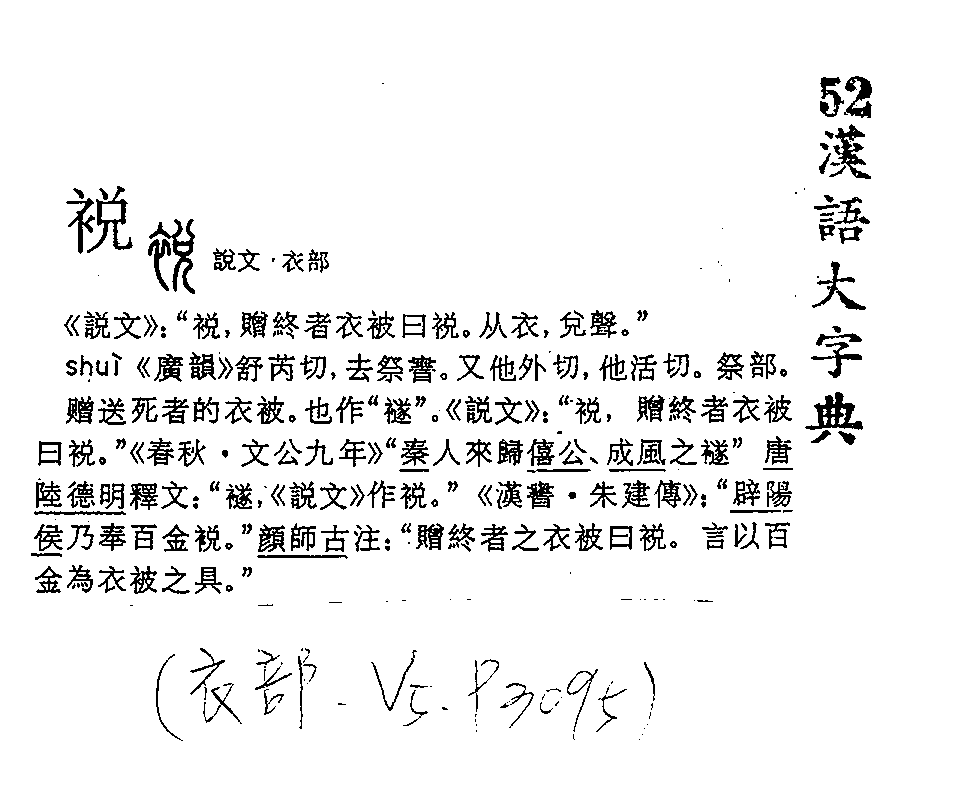 52漢語大字典
裞 裞 說文·衣部
《説文》：“裞，贈終者衣被曰裞。从衣，兌聲。”
shuì《廣韻》舒芮切，去祭書。又他外切，他活切。祭部。
赠送死者的衣被。也作“襚”。《説文》：“裞，贈終者衣被
曰裞。”《春秋·文公九年》“秦人來歸僖公、成風之襚”唐
陸德明釋文：“襚，《説文》作裞。”《漢書·朱建傳》：“辟陽
侯乃奉百金裞。”顔師古注：“贈終者之衣被曰裞。言以百
金為衣被之具。”
(衣部.V5.P3095)